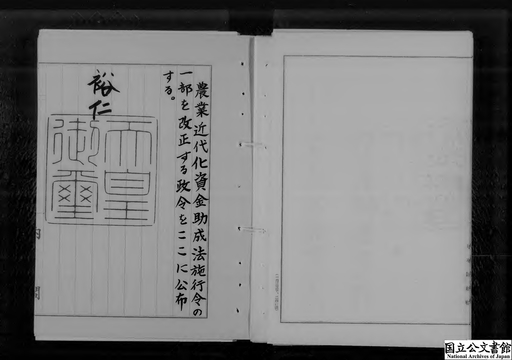 農業近代化資金助成法施行令の
一部を改正する政令をここに公布
する。
裕仁
天皇
御璽
内閣
国立公文書館
National Archives of Japan